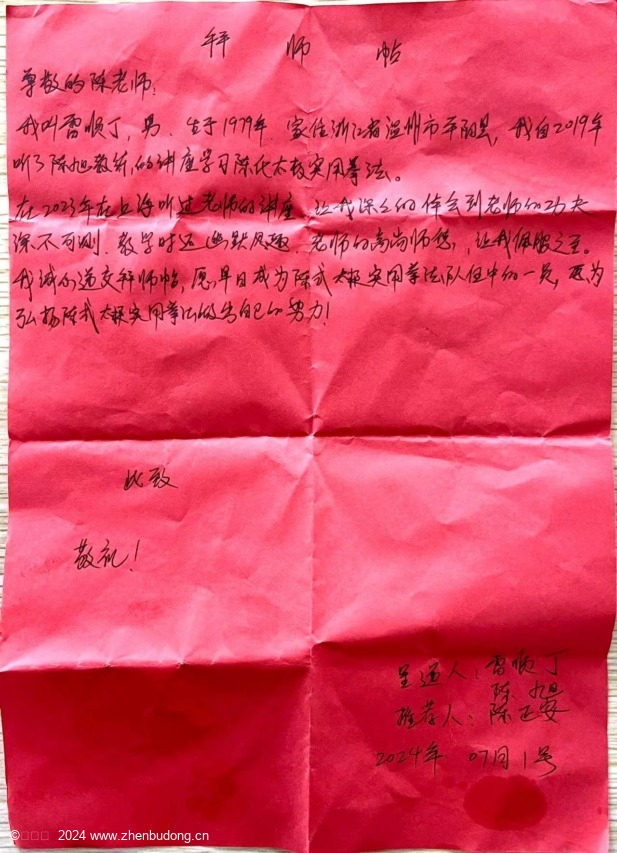 拜师帖
尊敬的陈老师:
我叫雷顺丁,男.生于1979年.家住浙江省温州市平阳县,我自2019年
听了陈旭教练的讲座学习陈氏太极实用拳法。
在2023年在上海听过老师的讲座,让我深深的体会到老师的功夫
深不可测.教学时还幽默风趣.老师的高尚师德,让我佩服之至。
我诚心递交拜师帖,愿早日成为陈式太极实用拳法队伍中的一员,愿为
弘扬陈式太极实用拳法做出自己的努力!
此致
敬礼!
呈递人:雷顺丁
陈旭
推荐人:陈正安
2024年07月1号
© 2024 www.zhenbudong.cn